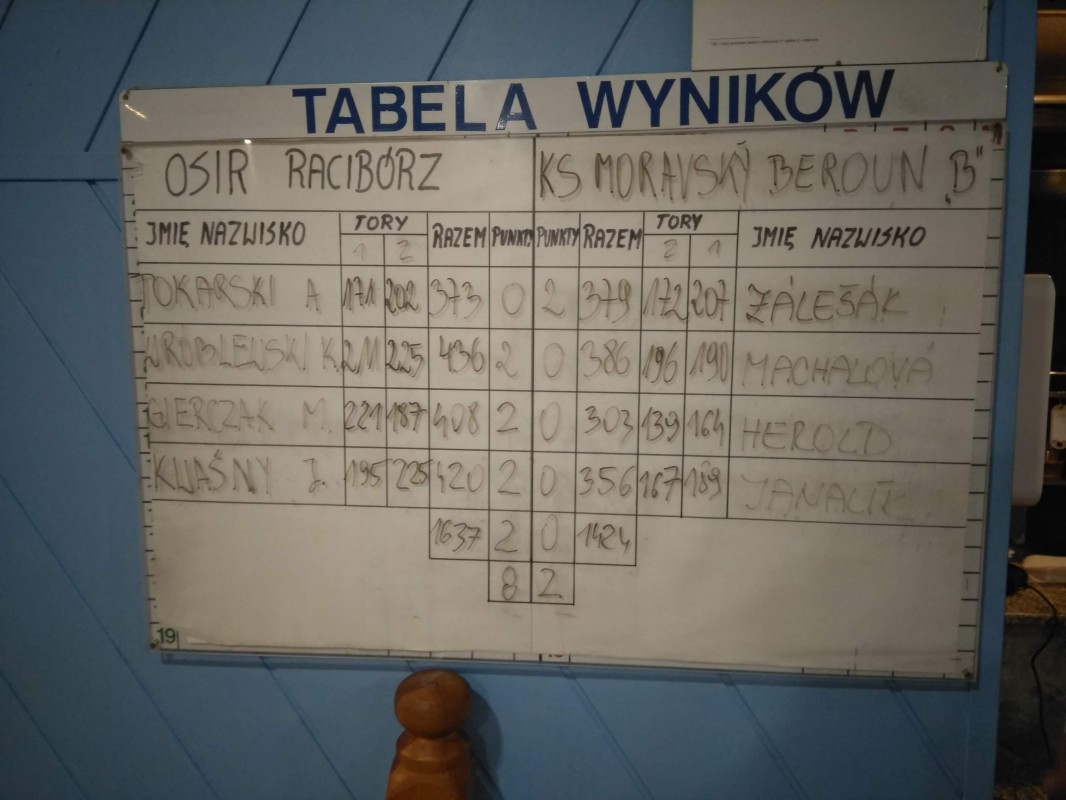 TABELA WYNIKÓW
OSIR RACIBÓRZ KS MORAVSKÝ BEROUN „B"
JMIĘ NAZWISKO TORY RAZEM PUNKTY PUNKTY RAZEM TORY JMIĘ NAZWISKO
1 2 2 1
TOKARSKI A 171 202 373 0 2 379 172 207 ZÁLEŠÁK
WRÓBLEWSKI K. 211 225 436 2 0 386 196 190 MACHALOVÁ
GIERCZAK M. 221 187 408 2 0 303 139 164 HEROLD
KWAŚNY J. 195 225 420 2 0 356 167 189 JANALÍK
1637 2 0 1424
8 2
19